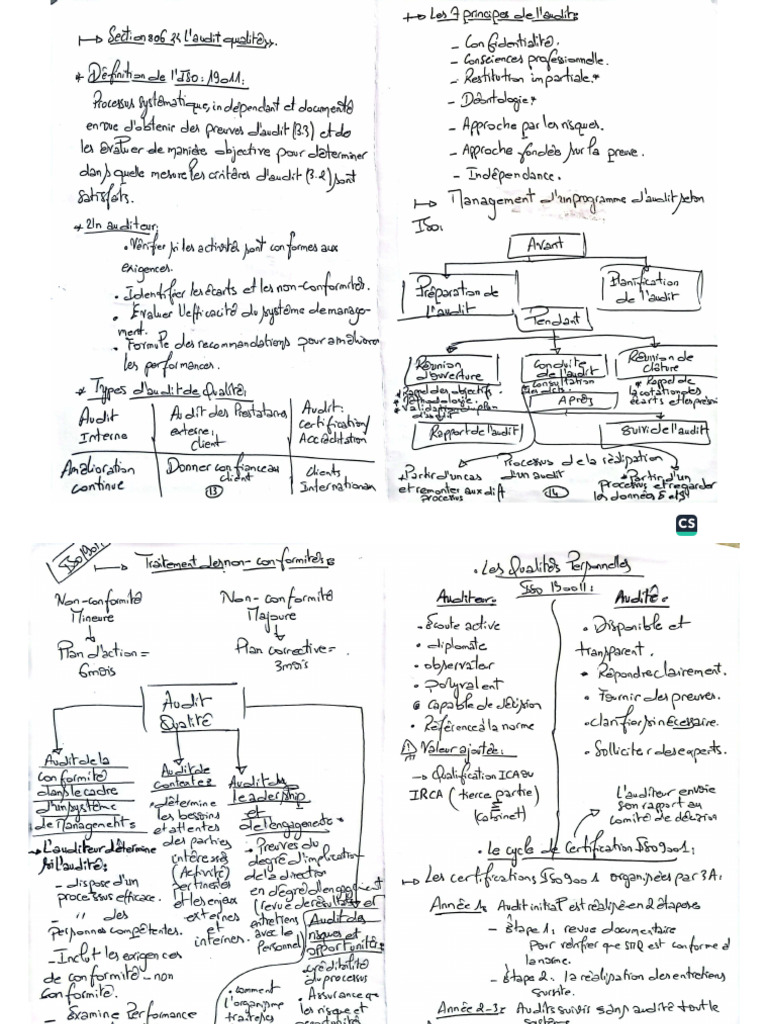 ↦ Section 06 : « L'audit qualité ».
* Définition de l'ISO : 19011 :
Processus systématique, indépendant et documenté
en vue d'obtenir des preuves d'audit (3.3) et de
les évaluer de manière objective pour déterminer
dans quelle mesure les critères d'audit (3.2) sont
satisfaits.
* Un auditeur :
• Vérifier si les activités sont conformes aux
exigences.
• Identifier les écarts et les non-conformités.
• Evaluer l'efficacité du système de manage-
ment.
• Formule des recommandations pour améliorer
les performances.
* Types d'audit de Qualité :
Audit
Interne
Audit des Prestataires
externe :
client
Audit :
certification/
Accréditation
Amélioration
continue
Donner confiance au
client
Clients
Internationaux
13
↦ Les 7 principes de l'audit :
- Confidentialité.
- Consciences professionnelle.
- Restitution impartiale.*
- Déontologie*
- Approche par les risques.
- Approche fondée sur la preuve.
- Indépendance.
↦ Management d'un programme d'audit selon
ISO :
Avant
Préparation de
l'audit
Planification
de l'audit
Pendant
Réunion
d'ouverture
Conduite
de l'audit
Réunion de
clôture
* Rappel des objectifs
* Méthodologie.
* Validation du plan
d'audit
Consultation
des dcts
* Rappel de
la cotation des
écarts et
Après
Rapport de l'audit
Suivi de l'audit
Processus de la réalisation
d'un audit
* Partir d'un cas
et remonter aux diff
processus
* Partir d'un
processus et regarder
les données
14
CS
ISO 19011
↦ Traitement des non-conformités :
Non-conformité
Mineure
Plan d'action =
6 mois
Non-conformité
Majeure
Plan corrective =
3 mois
Audit
Qualité
Audit de la
conformité
dans le cadre
d'un système
de Managements
→ L'auditeur détermine
si l'audité :
- dispose d'un
processus efficace.
- " des
personnes compétentes.
- Inclut les exigences
de conformité - non
conformité.
- Examine Performance
Audit de
contexte :
• détermine
les besoins
et attentes
des parties
intéressés
(Activité)
pertinentes
et les enjeux
externes
et
internes.
Audit du
leadership
et
de l'engagement :
• Preuves du
degré d'implication
de la direction
en degré d'engagement
(revue de résultats et
entretiens
avec le
personnel)
Audit des
risques et
opportunités
• crédibilité
du processus
• Assurance que
les risque et
• comment
l'organisme
• Les Qualités Personnelles
Auditeur :
- Ecoute active
• diplomate
• observateur
• polyvalent
• capable de décision
• Référence à la norme
Valeur ajoutée :
→ Qualification ICA ou
IRCA (tierce partie)
(cabinet)
Audité :
• Disponible et
transparent.
• Répondre clairement.
• Fournir des preuves.
• clarifier si nécessaire.
• Solliciter des experts.
L'auditeur envoie
son rapport au
comité de décision
• Le cycle de Certification ISO 9001 :
↦ Les certifications ISO 9001 organisées par 3A :
Année 1 : Audit initial est réalisé en 2 étapes
- Etape 1 : revue documentaire
Pour vérifier que SMQ est conforme à
la norme.
- Etape 2 : la réalisation des entretiens
sur site.
Année 2-3 : Audits suivis sans audité tout le
système